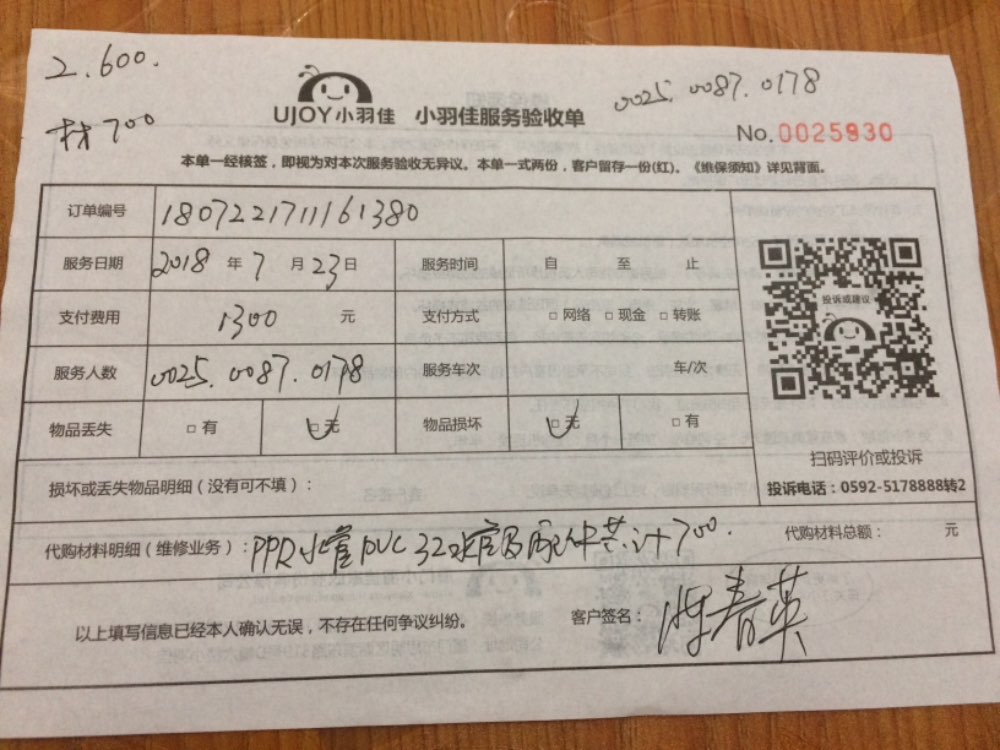 2.600.
材700
UJOY小羽佳 小羽佳服务验收单
0025.0087.0178
No.0025930
本单一经核签，即视为对本次服务验收无异议。本单一式两份，客户留存一份(红)。《维保须知》详见背面。
订单编号 1807221711161380
服务日期 2018年7月23日 服务时间 自 至 止
支付费用 1300 元 支付方式 □网络 □现金 □转账
服务人数 0025.0087.0178 服务车次 车/次
物品丢失 □有 □无 物品损坏 □无 □有
投诉或建议
扫码评价或投诉
投诉电话：0592-5178888转2
损坏或丢失物品明细（没有可不填）：
代购材料明细（维修业务）：PPR水管PVC32水管及配件共计700. 代购材料总额： 元
以上填写信息已经本人确认无误，不存在任何争议纠纷。 客户签名：陈春英